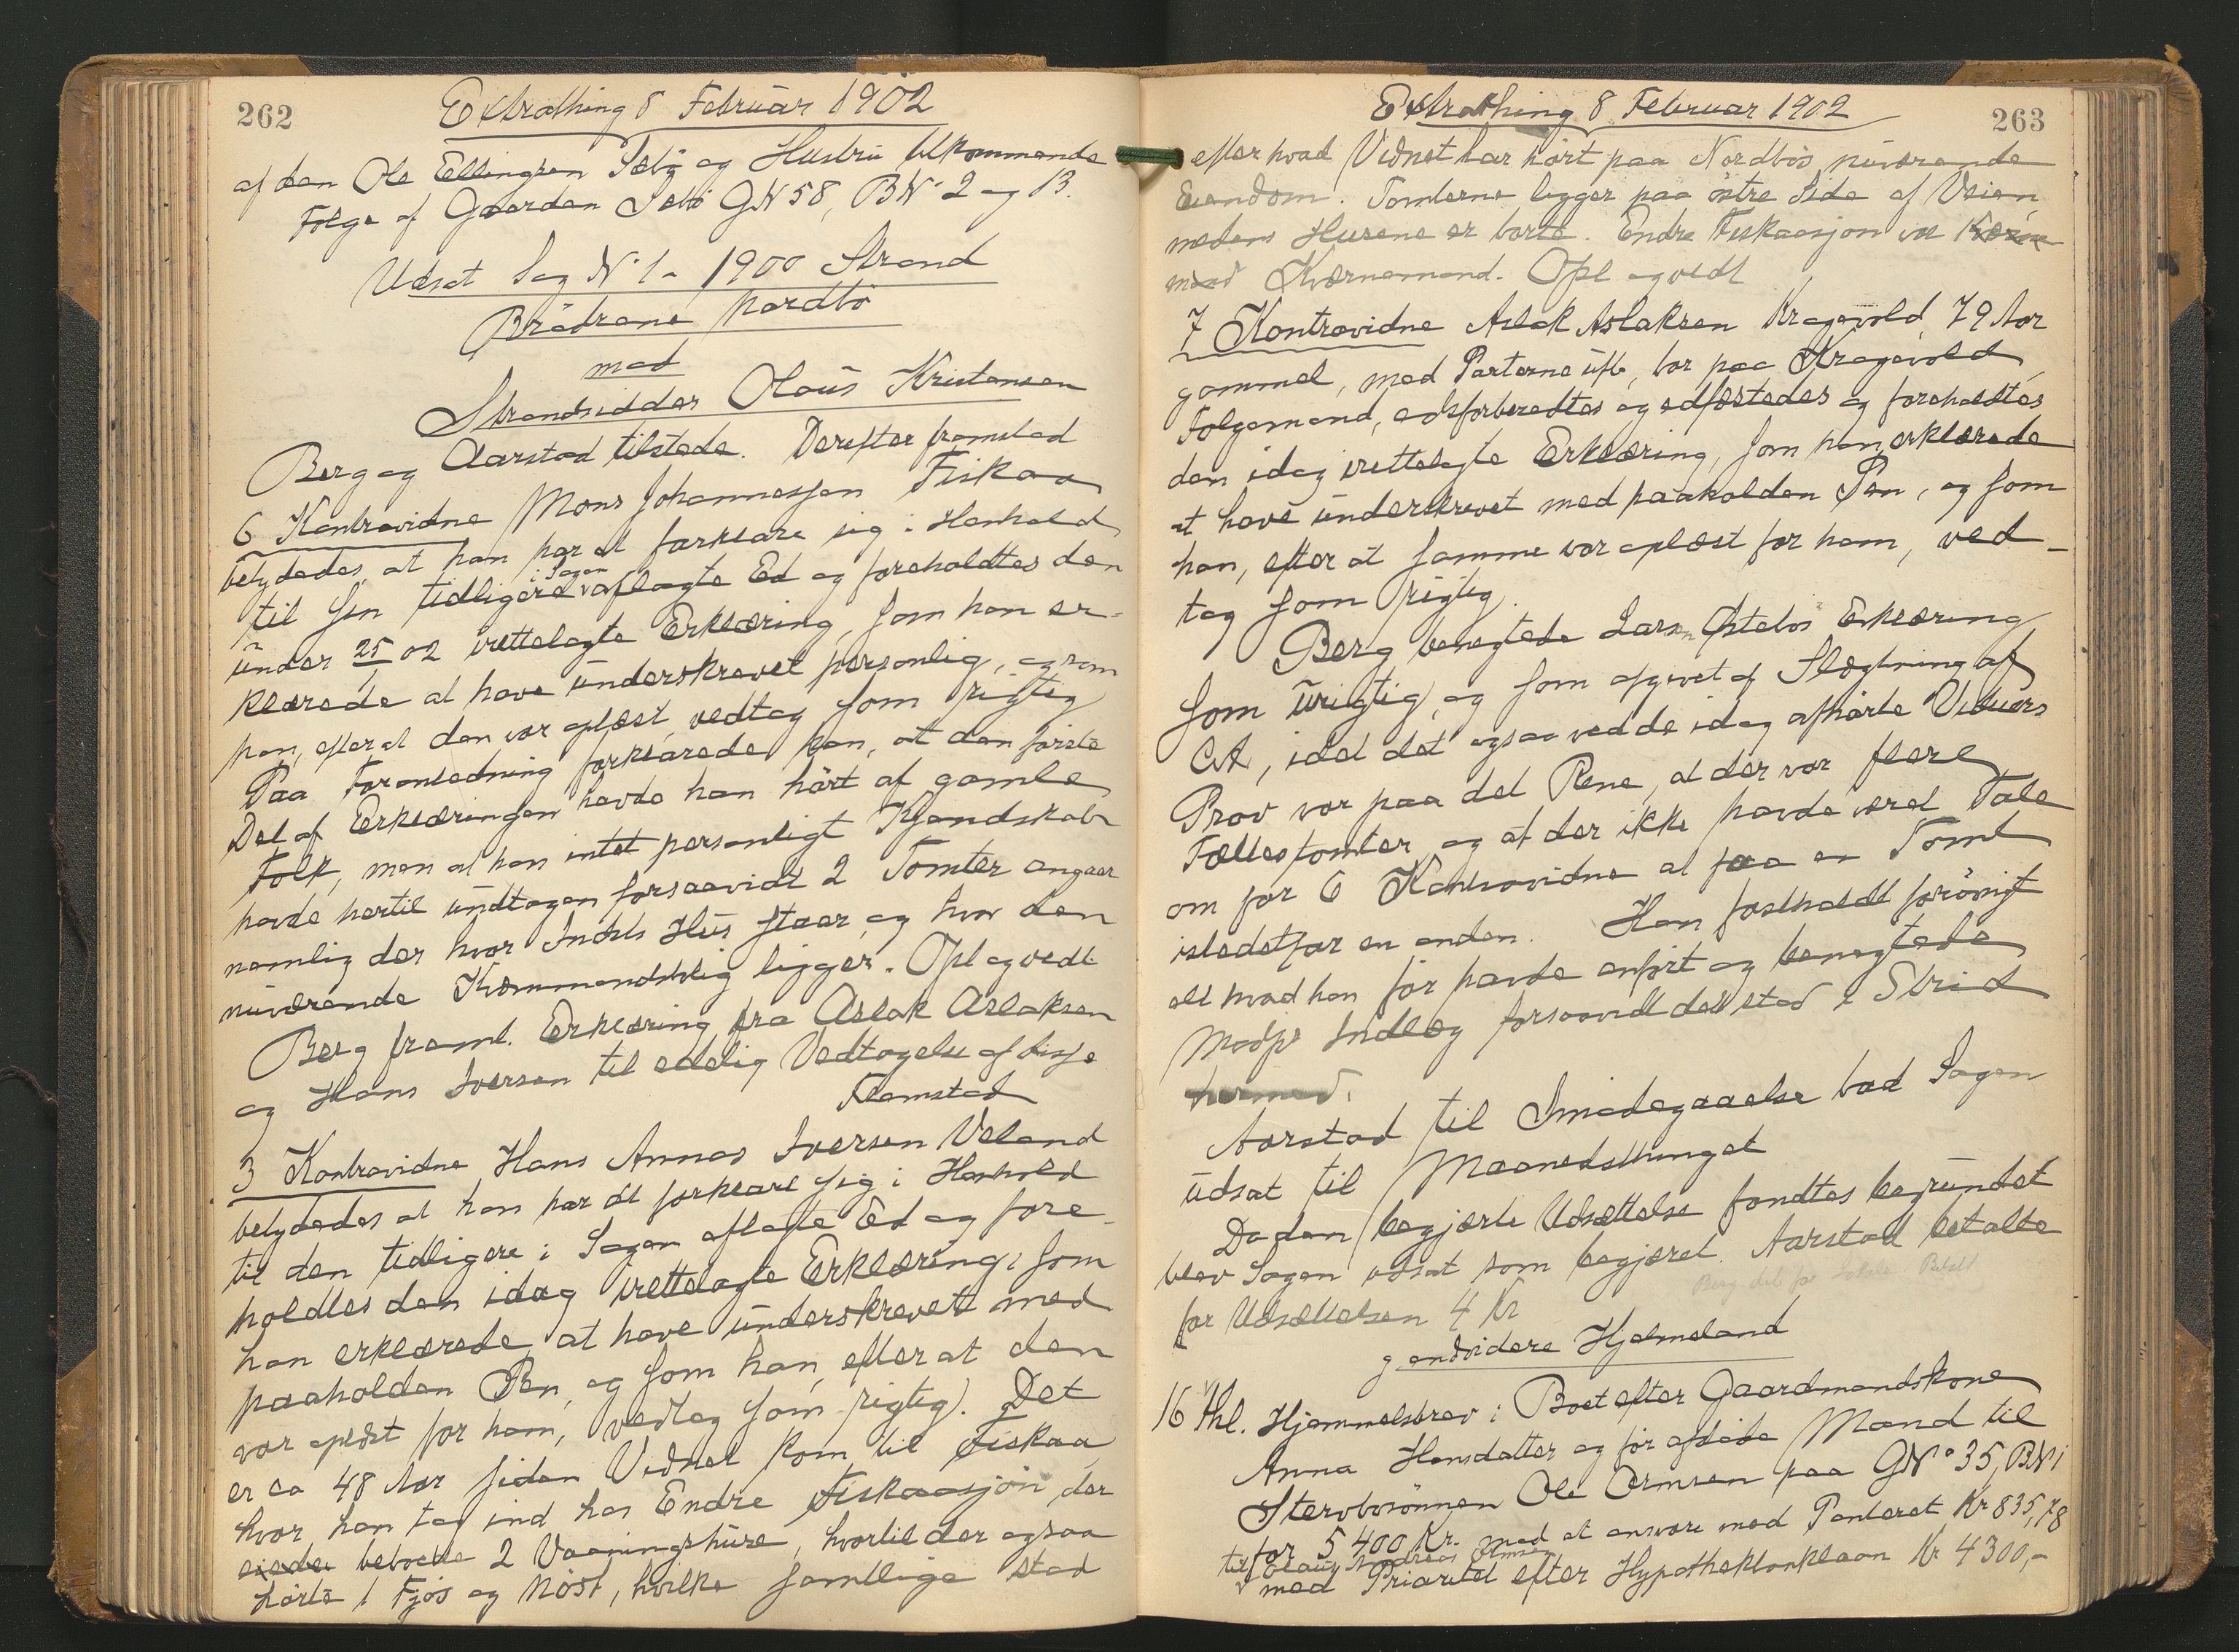 262
Extrathing 8 Februar 1902
af den Ole Ellingsen Sæbø og Hustru tilkommende
Følge af Gaarden Sæbø GN 58, BN 2 og 13.
Udsat Sag N 1 1900 Strand
Brødrene Nordbø
mod
Strandsidder Olaus Kristensen
Berg og Aarstad tilstede. Derefter fremstod
6 Kontravidne Mons Johannessen Fiskaa
betydedes, at han har at forklare sig i Henhold
til sin tidligere i Sagen aflagte Ed og foreholdtes den
under 25 02 irettelagte Erklæring, som han er-
klærede at have underskrevet personlig, og som
han, efter at den var oplæst, vedtog som rigtig
Paa Foranledning forklarede han, at den første
Del af Erklæringen havde han hørt af gamle
Folk, men at han intet personligt Kjendskab
havde hertil undtagen forsaavidt 2 Tomter angaar
nemlig der hvor Hus staar, og hvor den
nuværende ligger. Opl og vedt
Berg freml. Erklæring fra Aslak Aslaksen
og Hans Iversen til edelig Vedtagelse af disse
Fremstod
3 Kontravidne Hans Annas Iversen Veland
betydedes at han har at forklare sig i Henhold
til den tidligere i Sagen aflagte Ed og fore-
holdtes den idag irettelagte Erklæring, som
han erklærede at have underskrevet med
paaholden Pen, og som han, efter at den
var oplæst for ham, vedtog som rigtig. Det
er ca 48 Aar siden Vidnet kom til Fiskaa
hvor han tog ind hos Endre Fiskaasjøn, der
eiede beboede 2 Vaaningshuse, hvortil der ogsaa
hørte 1 Fjøs og Nøst, hvilke samtlige stod
263
Extrathing 8 Februar 1902
efter hvad Vidnet har hørt paa Nordbøs nuværende
Eiendom. Tomterne ligger paa østre Side af Veien
medens Husene er borte. Endre Fiskaasjøn var
Kværnemand. Opl og vedt
7 Kontravidne Aslak Aslaksen Kragevold, 79 Aar
gammel, med Parterne ubt, bor paa Kragevold,
Følgemand, edsforberedtes og edfæstedes og foreholdtes
den idag irettelagte Erklæring, som han erklærede
at have underskrevet med paaholden Pen, og som
han, efter at samme var oplæst for ham, ved-
tog som rigtig.
Berg benegtede Lars Østebøs Erklæring
som urigtig, og som afgivet af Slægtning af
Ct, idet det ogsaa ved de idag afhørte Vidners
Prov var paa det Rene, at der var flere
Fællestomter, og at der ikke havde været Tale
om for 6 Kontravidne at faa en Tomt
istedetfor en anden. Han fastholdt forøvrigt
alt hvad han før havde anført og benegtede
Modps Indlæg forsaavidt det stod i Strid
hermed.
Aarstad til Imødegaaelse bad Sagen
udsat til Maanedsthinget
Da den begjærte Udsættelse fandtes begrundet
blev Sagen udsat som begjæret. Aarstad betalte
for Udsættelsen 4 Kr
endvidere Hjelmeland
16 thl. Hjemmelsbrev i Boet efter Gaardmandskone
Anna Hansdatter og før afdøde Mand til
Stervbosønnen Ole Ormsen paa GN° 35, BN 1
for 5400 Kr. med at ansvare med Panteret Kr 835,78
til Olaus Andreas Ormsen
med Prioritet efter Hypothekbanklaan Kr 4300,-